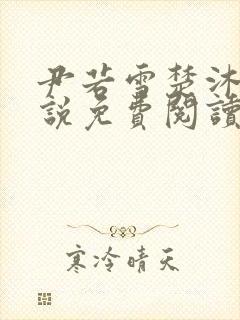 尹若雪楚沐
說免費閱讀
寒冷晴天